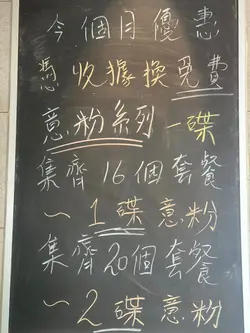 今個月優惠
憑收據換免費
意粉系列一碟
集齊16個套餐
~1碟意粉
集齊20個套餐
~2碟意粉